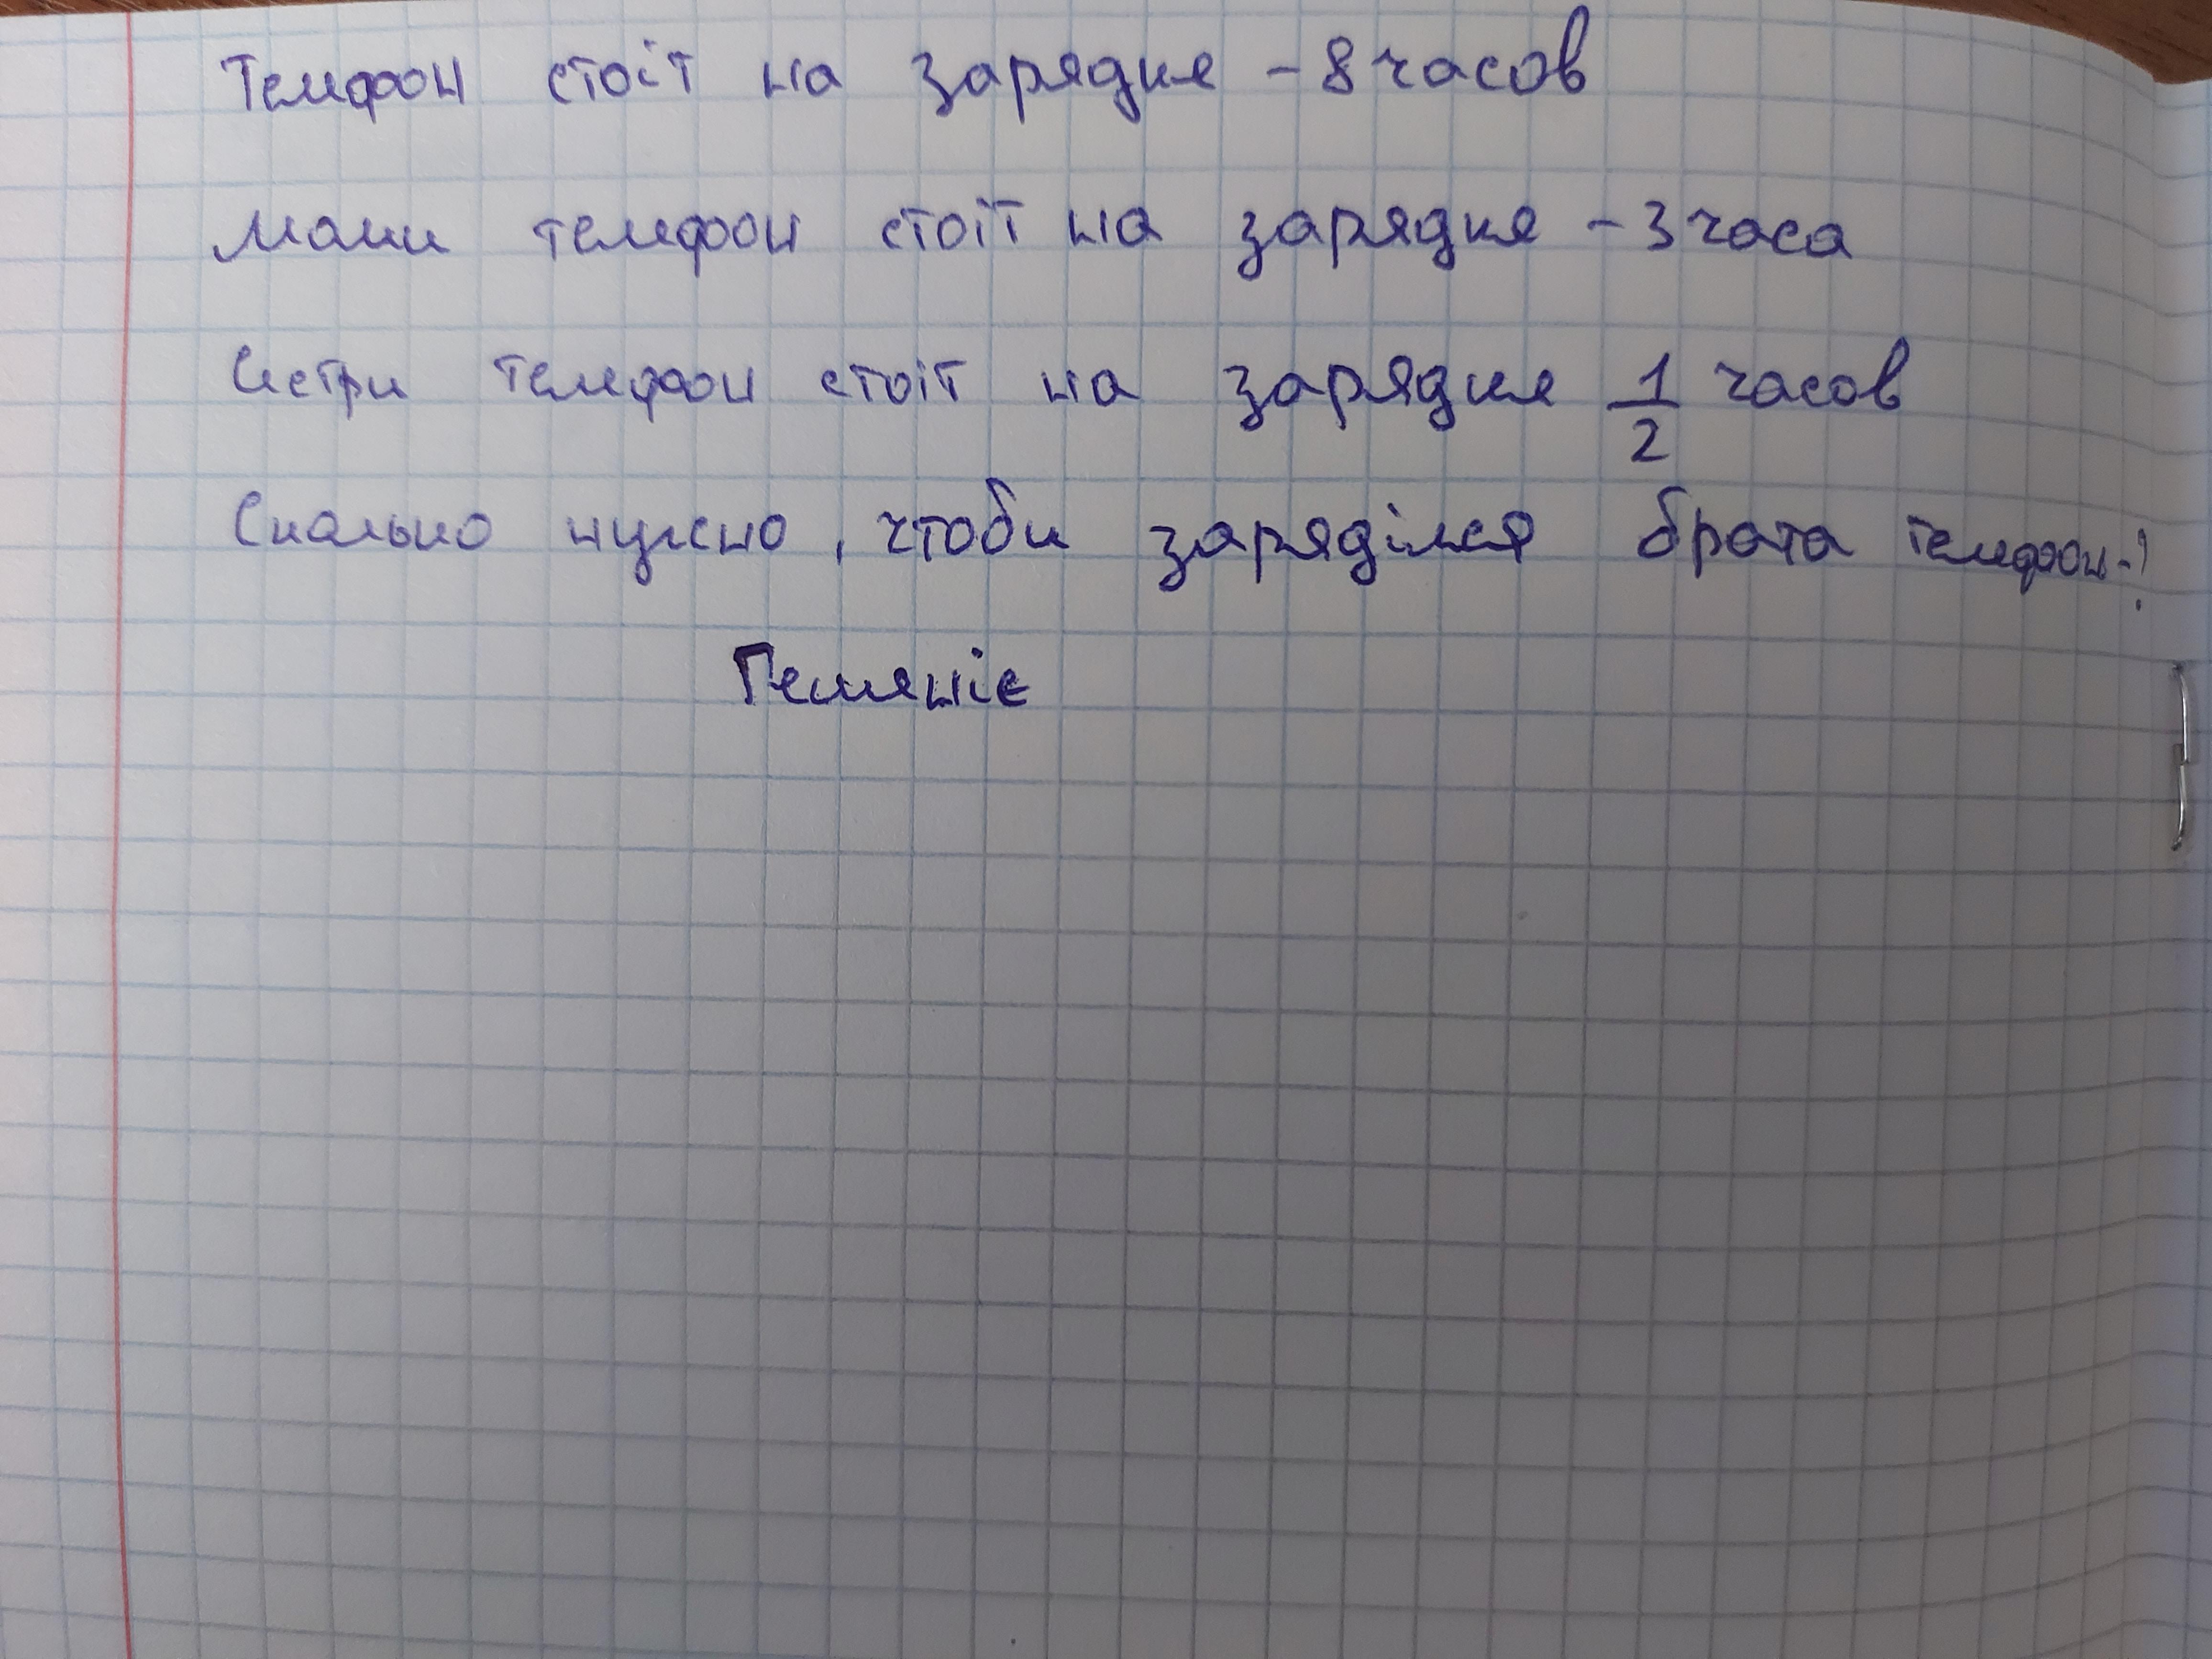 Телефон стоіт на зарядке - 8 часов
Мами телефон стоіт на зарядке - 3 часа
Сестри телефон стоіт на зарядке 1/2 часов
Сколько нужно, чтоби заряділся брата телефон-?
Решеніє